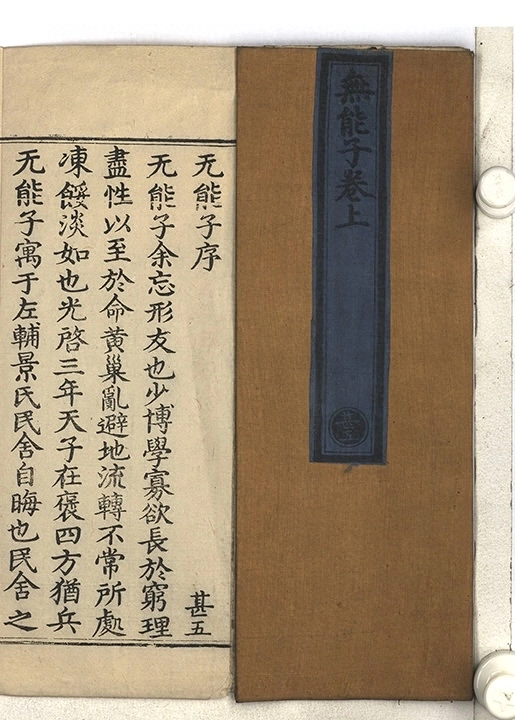 無能子卷上
甚五
无能子序
甚五
无能子余忘形友也少博學寡欲長於窮理
盡性以至於命黄巢亂避地流轉不常所處
凍餒淡如也光啓三年天子在褒四方猶兵
无能子寓于左輔景氏民舍自晦也民舍之